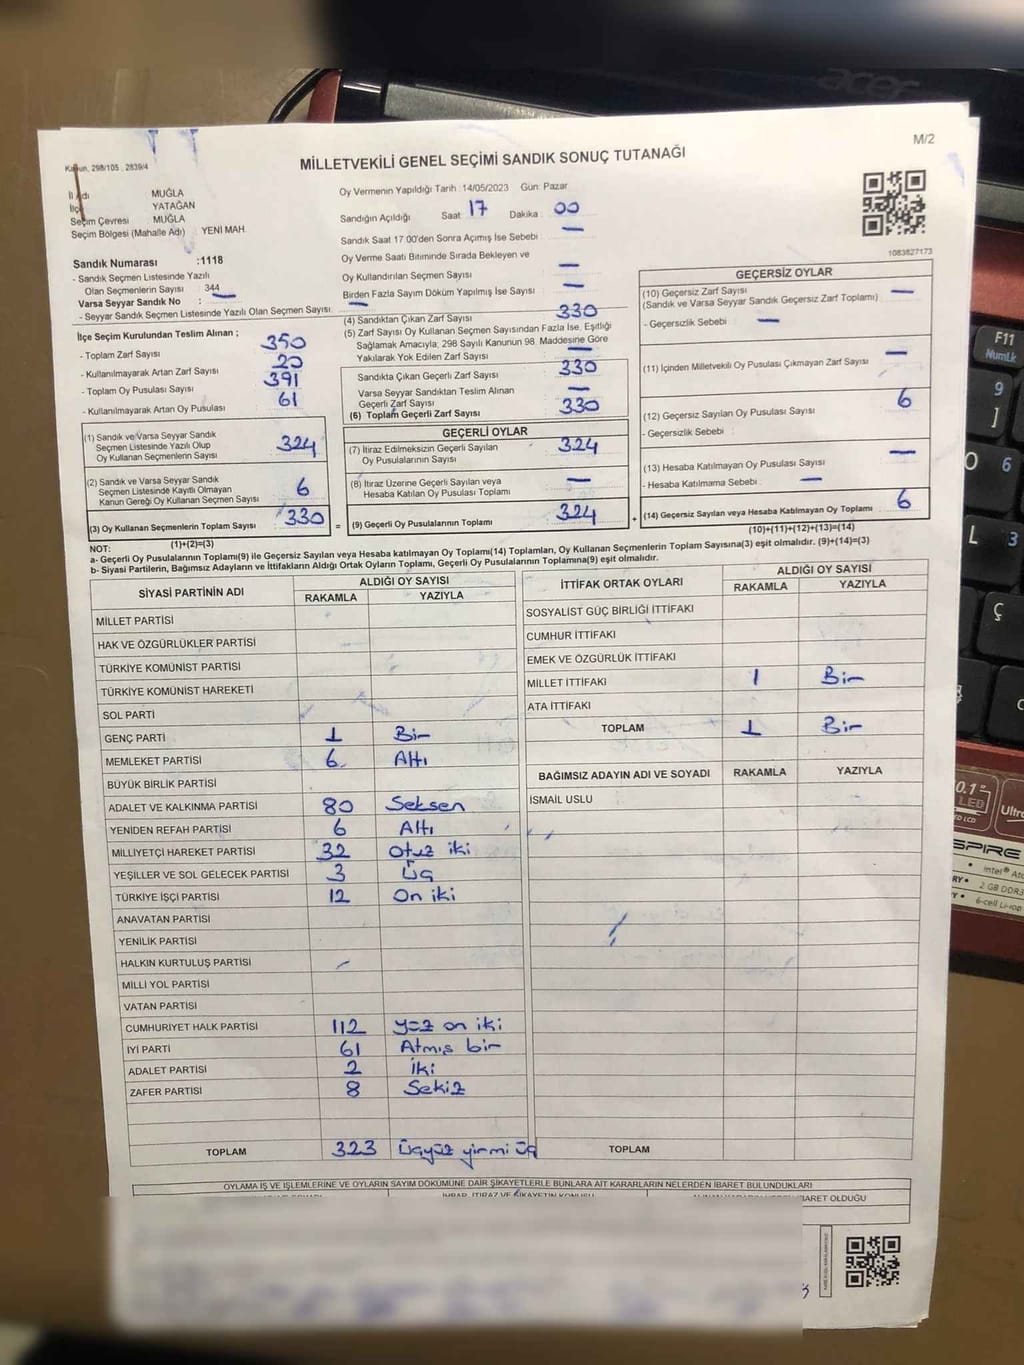 acer
M/2
Kanun, 298/105 , 2839/4
MİLLETVEKİLİ GENEL SEÇİMİ SANDIK SONUÇ TUTANAĞI
İl Adı MUĞLA
İlçe YATAĞAN
Seçim Çevresi MUĞLA
Seçim Bölgesi (Mahalle Adı) YENİ MAH.
Sandık Numarası :1118
- Sandık Seçmen Listesinde Yazılı
Olan Seçmenlerin Sayısı 344
Varsa Seyyar Sandık No : —
- Seyyar Sandık Seçmen Listesinde Yazılı Olan Seçmen Sayısı: —
Oy Vermenin Yapıldığı Tarih : 14/05/2023 Gün: Pazar
Sandığın Açıldığı Saat 17 Dakika 00
Sandık Saat 17 00'den Sonra Açımış İse Sebebi : —
Oy Verme Saati Bitiminde Sırada Bekleyen ve
Oy Kullandırılan Seçmen Sayısı —
Birden Fazla Sayım Döküm Yapılmış İse Sayısı —
1083827173
İlçe Seçim Kurulundan Teslim Alınan ;
- Toplam Zarf Sayısı 350
- Kullanılmayarak Artan Zarf Sayısı 20
- Toplam Oy Pusulası Sayısı 391
- Kullanılmayarak Artan Oy Pusulası 61
(1) Sandık ve Varsa Seyyar Sandık
Seçmen Listesinde Yazılı Olup
Oy Kullanan Seçmenlerin Sayısı 324
(2) Sandık ve Varsa Seyyar Sandık
Seçmen Listesinde Kayıtlı Olmayan
Kanun Gereği Oy Kullanan Seçmen Sayısı 6
(3) Oy Kullanan Seçmenlerin Toplam Sayısı 330
(1)+(2)=(3)
(4) Sandıktan Çıkan Zarf Sayısı 330
(5) Zarf Sayısı Oy Kullanan Seçmen Sayısından Fazla İse, Eşitliği
Sağlamak Amacıyla, 298 Sayılı Kanunun 98. Maddesine Göre
Yakılarak Yok Edilen Zarf Sayısı —
Sandıkta Çıkan Geçerli Zarf Sayısı 330
Varsa Seyyar Sandıktan Teslim Alınan
Geçerli Zarf Sayısı —
(6) Toplam Geçerli Zarf Sayısı 330
GEÇERLİ OYLAR
(7) İtiraz Edilmeksizin Geçerli Sayılan
Oy Pusulalarının Sayısı 324
(8) İtiraz Üzerine Geçerli Sayılan veya
Hesaba Katılan Oy Pusulası Toplamı —
= (9) Geçerli Oy Pusulalarının Toplamı 324
GEÇERSİZ OYLAR
(10) Geçersiz Zarf Sayısı —
(Sandık ve Varsa Seyyar Sandık Geçersiz Zarf Toplamı)
- Geçersizlik Sebebi : —
(11) İçinden Milletvekili Oy Pusulası Çıkmayan Zarf Sayısı —
(12) Geçersiz Sayılan Oy Pusulası Sayısı 6
- Geçersizlik Sebebi :
(13) Hesaba Katılmayan Oy Pusulası Sayısı —
- Hesaba Katılmama Sebebi : —
+ (14) Geçersiz Sayılan veya Hesaba Katılmayan Oy Toplamı 6
(10)+(11)+(12)+(13)=(14)
NOT:
a- Geçerli Oy Pusulalarının Toplamı(9) ile Geçersiz Sayılan veya Hesaba katılmayan Oy Toplamı(14) Toplamları, Oy Kullanan Seçmenlerin Toplam Sayısına(3) eşit olmalıdır. (9)+(14)=(3)
b- Siyasi Partilerin, Bağımsız Adayların ve İttifakların Aldığı Ortak Oyların Toplamı, Geçerli Oy Pusulalarının Toplamına(9) eşit olmalıdır.
SİYASİ PARTİNİN ADI ALDIĞI OY SAYISI
RAKAMLA YAZIYLA
MİLLET PARTİSİ
HAK VE ÖZGÜRLÜKLER PARTİSİ
TÜRKİYE KOMÜNİST PARTİSİ
TÜRKİYE KOMÜNİST HAREKETİ
SOL PARTİ
GENÇ PARTİ 1 Bir
MEMLEKET PARTİSİ 6 Altı
BÜYÜK BİRLİK PARTİSİ
ADALET VE KALKINMA PARTİSİ 80 Seksen
YENİDEN REFAH PARTİSİ 6 Altı
MİLLİYETÇİ HAREKET PARTİSİ 32 Otuz iki
YEŞİLLER VE SOL GELECEK PARTİSİ 3 Üç
TÜRKİYE İŞÇİ PARTİSİ 12 On iki
ANAVATAN PARTİSİ
YENİLİK PARTİSİ
HALKIN KURTULUŞ PARTİSİ
MİLLİ YOL PARTİSİ
VATAN PARTİSİ
CUMHURİYET HALK PARTİSİ 112 yüz on iki
İYİ PARTİ 61 Atmış bir
ADALET PARTİSİ 2 İki
ZAFER PARTİSİ 8 Sekiz
TOPLAM 323 Üçyüz yirmi üç
İTTİFAK ORTAK OYLARI ALDIĞI OY SAYISI
RAKAMLA YAZIYLA
SOSYALİST GÜÇ BİRLİĞİ İTTİFAKI
CUMHUR İTTİFAKI
EMEK VE ÖZGÜRLÜK İTTİFAKI
MİLLET İTTİFAKI 1 Bir
ATA İTTİFAKI
TOPLAM 1 Bir
BAĞIMSIZ ADAYIN ADI VE SOYADI RAKAMLA YAZIYLA
İSMAİL USLU
TOPLAM
OYLAMA İŞ VE İŞLEMLERİNE VE OYLARIN SAYIM DÖKÜMÜNE DAİR ŞİKAYETLERLE BUNLARA AİT KARARLARIN NELERDEN İBARET BULUNDUKLARI
F11
NumLk
9
]
O 6
L 3
Ç
10.1"
LED
ED LCD
Ultra
SPIRE
Intel® Ato
2 GB DDR3
6-cell Li-ion